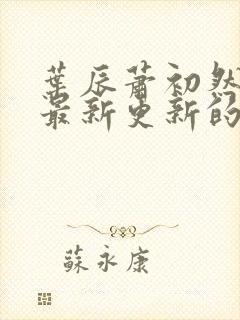 葉辰蕭初然
最新更新的
蘇永康